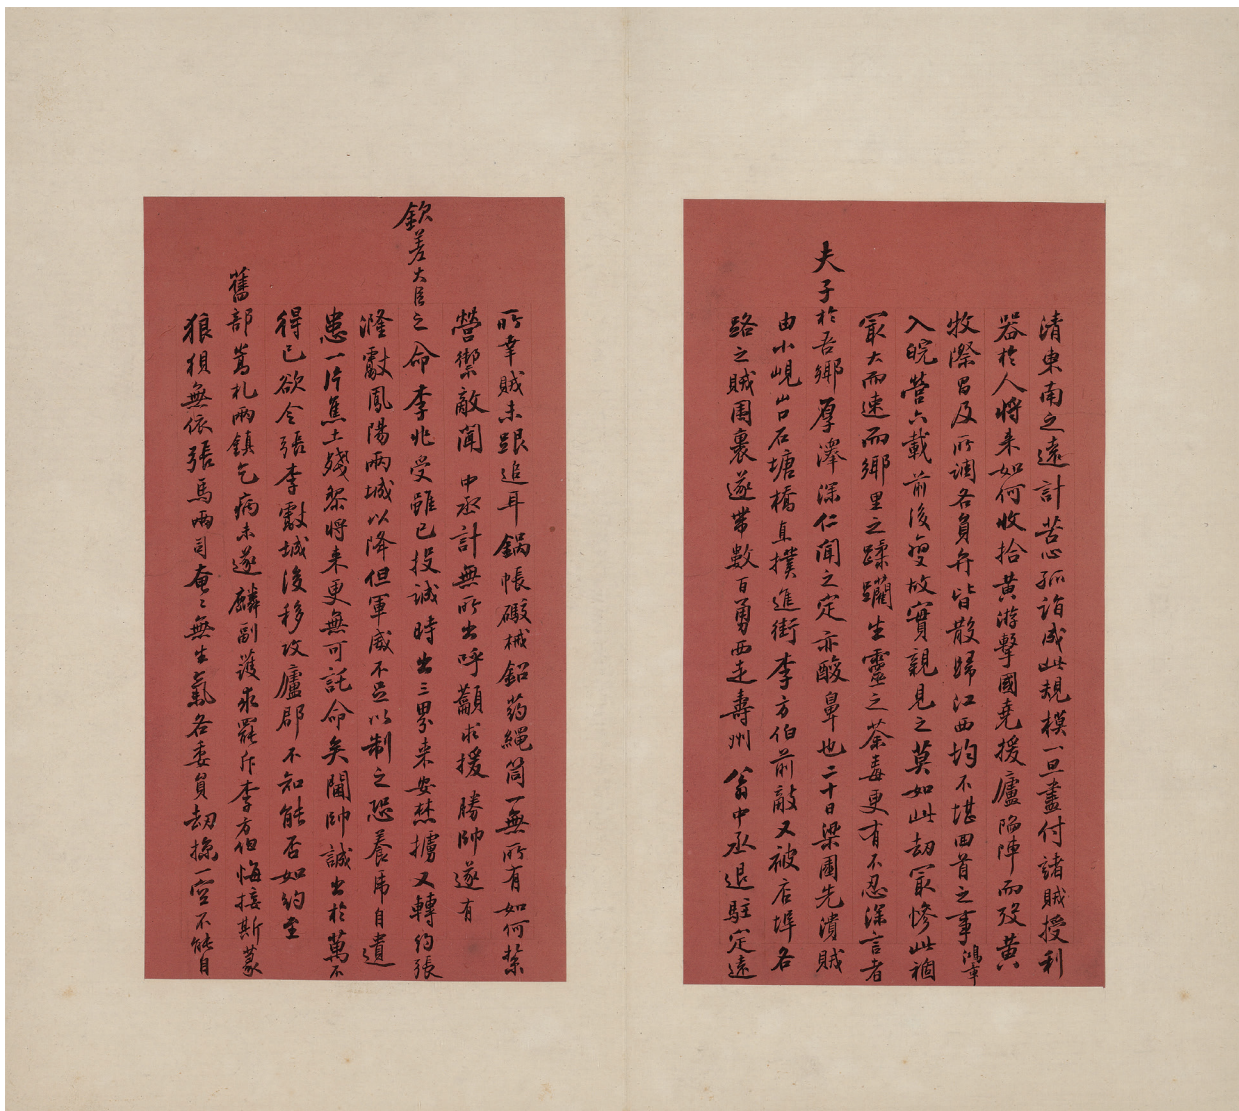 清東南之遠計苦心孤詣成此規模一旦盡付諸賊授利
器於人將來如何收拾黃游擊國堯援廬陷陣而歿黃
牧際昌及所調各員弁皆散歸江西均不堪回首之事鴻章
入皖營六載前後變故實親見之莫如此劫最慘此禍
最大而速而鄉里之蹂躪生靈之荼毒更有不忍深言者
夫子於吾鄉厚澤深仁聞之定亦酸鼻也二十日梁園先潰賊
由小峴山石塘橋直撲進街李方伯前敵又被店埠各
路之賊圍裏遂帶數百勇西走壽州翁中丞退駐定遠
所幸賊未跟追耳鍋帳礮械鉛藥繩筒一無所有如何紮
營禦敵聞中丞計無所出呼籲求援勝帥遂有
欽差大臣之命李兆受雖已投誠時出三界來安焚擄又轉約張
漋獻鳳陽兩城以降但軍威不足以制之恐養虎自遺
患一片焦土殘黎將來更無可託命矣閫帥誠出於萬不
得已欲令張李獻城後移攻廬郡不知能否如約坐
舊部嵩札兩鎮乞病未遂麟副護求罷斥李方伯悔接斯篆
狼狽無依張馬兩司奄奄無生氣各委員劫掠一空不能自